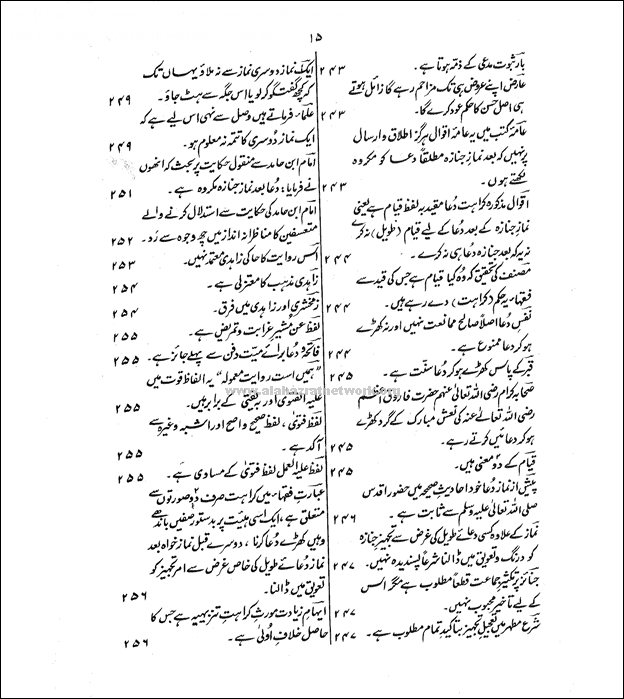 ۱۵
بارِ ثبوت مدعی کے ذمہ ہوتا ہے۔ ۲۴۳
عارض اپنے عروض ہی تک مزاحم رہے گا زائل ہوتے
ہی اصل حسن کا حکم عود کرے گا۔ ۲۴۳
عامۂ کتب میں یہ عامہ اقوال ہرگز اطلاق و ارسال
پر نہیں کہ بعد نماز جنازہ مطلقًا دعا کو مکروہ
لکھتے ہوں۔ ۲۴۳
اقوال مذکورہ کراہت دُعا مقید بہ لفظ قیام ہے یعنی
نماز جنازہ کے بعد دُعا کے لیے قیام (طویل) نہ کرے
نہ یہ کہ بعد جنازہ دُعا ہی نہ کرے۔ ۲۴۴
مصنف کی تحقیق کہ وُہ کیا قیام ہے جس کی قید سے
فقہاء یہ حکم (کراہت) دے رہے ہیں۔ ۲۴۴
نفسِ دعا اصلًا صالح ممانعت نہیں اور نہ کھڑے
ہو کر دعا ممنوع ہے۔ ۲۴۴
قبر کے پاس کھڑے ہو کر دُعا سنّت ہے۔ ۲۴۵
صحابہ کرام رضی اللہ تعالٰی عنہم حضرت فاروق اعظم
رضی اللہ تعالٰی عنہ کی نعش مبارک کے گرد کھڑے
ہو کر دعائیں کرتے رہے۔ ۲۴۵
قیام کے دو معنی ہیں۔ ۲۴۵
پیش از نماز دُعا خود احادیثِ صحیحہ میں حضور اقدس
صلی اللہ تعالٰی علیہ وسلم سے ثابت ہے۔ ۲۴۶
نماز کے علاوہ کسی دعائے طویل کی غرض سے تجہیزِ جنازہ
کو درنگ و تعویق میں ڈالنا شرعًا پسندیدہ نہیں۔ ۲۴۷
جنائز پر تکثیرِ جماعت قطعًا مطلوب ہے مگر اس
کے لیے تاخیر محبوب نہیں۔ ۲۴۷
شرع مطہر میں تعجیلِ تجہیز بتاکید تمام مطلوب ہے۔ ۲۴۷
ایک نماز دوسری نماز سے نہ ملاؤ یہاں تک
کہ کچھ گفتگو کر لو یا اس جگہ سے ہٹ جاؤ۔ ۲۴۹
علماء فرماتے ہیں وصل سے نہی اس لیے ہے کہ
ایک نماز دُوسری کا تتمہ نہ معلوم ہو۔ ۲۴۹
امام ابن حامد سے منقول حکایت پر بحث کہ انھوں
نے فرمایا: دُعا بعد نماز جنازہ مکروہ ہے۔ ۲۵۱
امام ابن حامد کی حکایت سے استدلال کرنے والے
متعسفین کا مناظرانہ انداز میں چھ وجوہ سے رَد۔ ۲۵۲
اس روایت کا حاکی زاہدی معتمد نہیں۔ ۲۵۳
زاہدی مذہب کا معتزلی ہے۔ ۲۵۴
زمخشری اور زاہدی میں فرق۔ ۲۵۴
لفظ عن مُشیرِ غرابت و تمریض ہے۔ ۲۵۵
فاتحہ و دُعا برائے میت دفن سے پہلے جائز ہے۔ ۲۵۵
"ہمیں است روایت معمولہ" یہ الفاظ قوت میں
علیہ الفتوی اور یفتی کے برابر ہیں۔ ۲۵۵
لفظ فتوٰی، لفظ صحیح واصح اور اشبہ وغیرہ سے
آکد ہے۔ ۲۵۵
لفظ علیہ العمل لفظ فتوٰی کے مساوی ہے۔ ۲۵۵
عبارتِ فقہاء میں کراہت صرف دو صورتوں سے
متعلق ہے، ایک اسی ہیئت پر بدستور صفیں باندھے
وہیں کھڑے دُعا کرنا، دوسرے قبل نماز خواہ بعد
نماز دُعائے طویل کی خاص غرض سے امرِ تجہیز کو
تعویق میں ڈالنا۔ ۲۵۶
ایہامِ زیادت مورثِ کراہتِ تنزیہیہ ہے جس کا
حاصل خلافِ اَولٰی ہے۔ ۲۵۶
www.alahazratnetwork.org